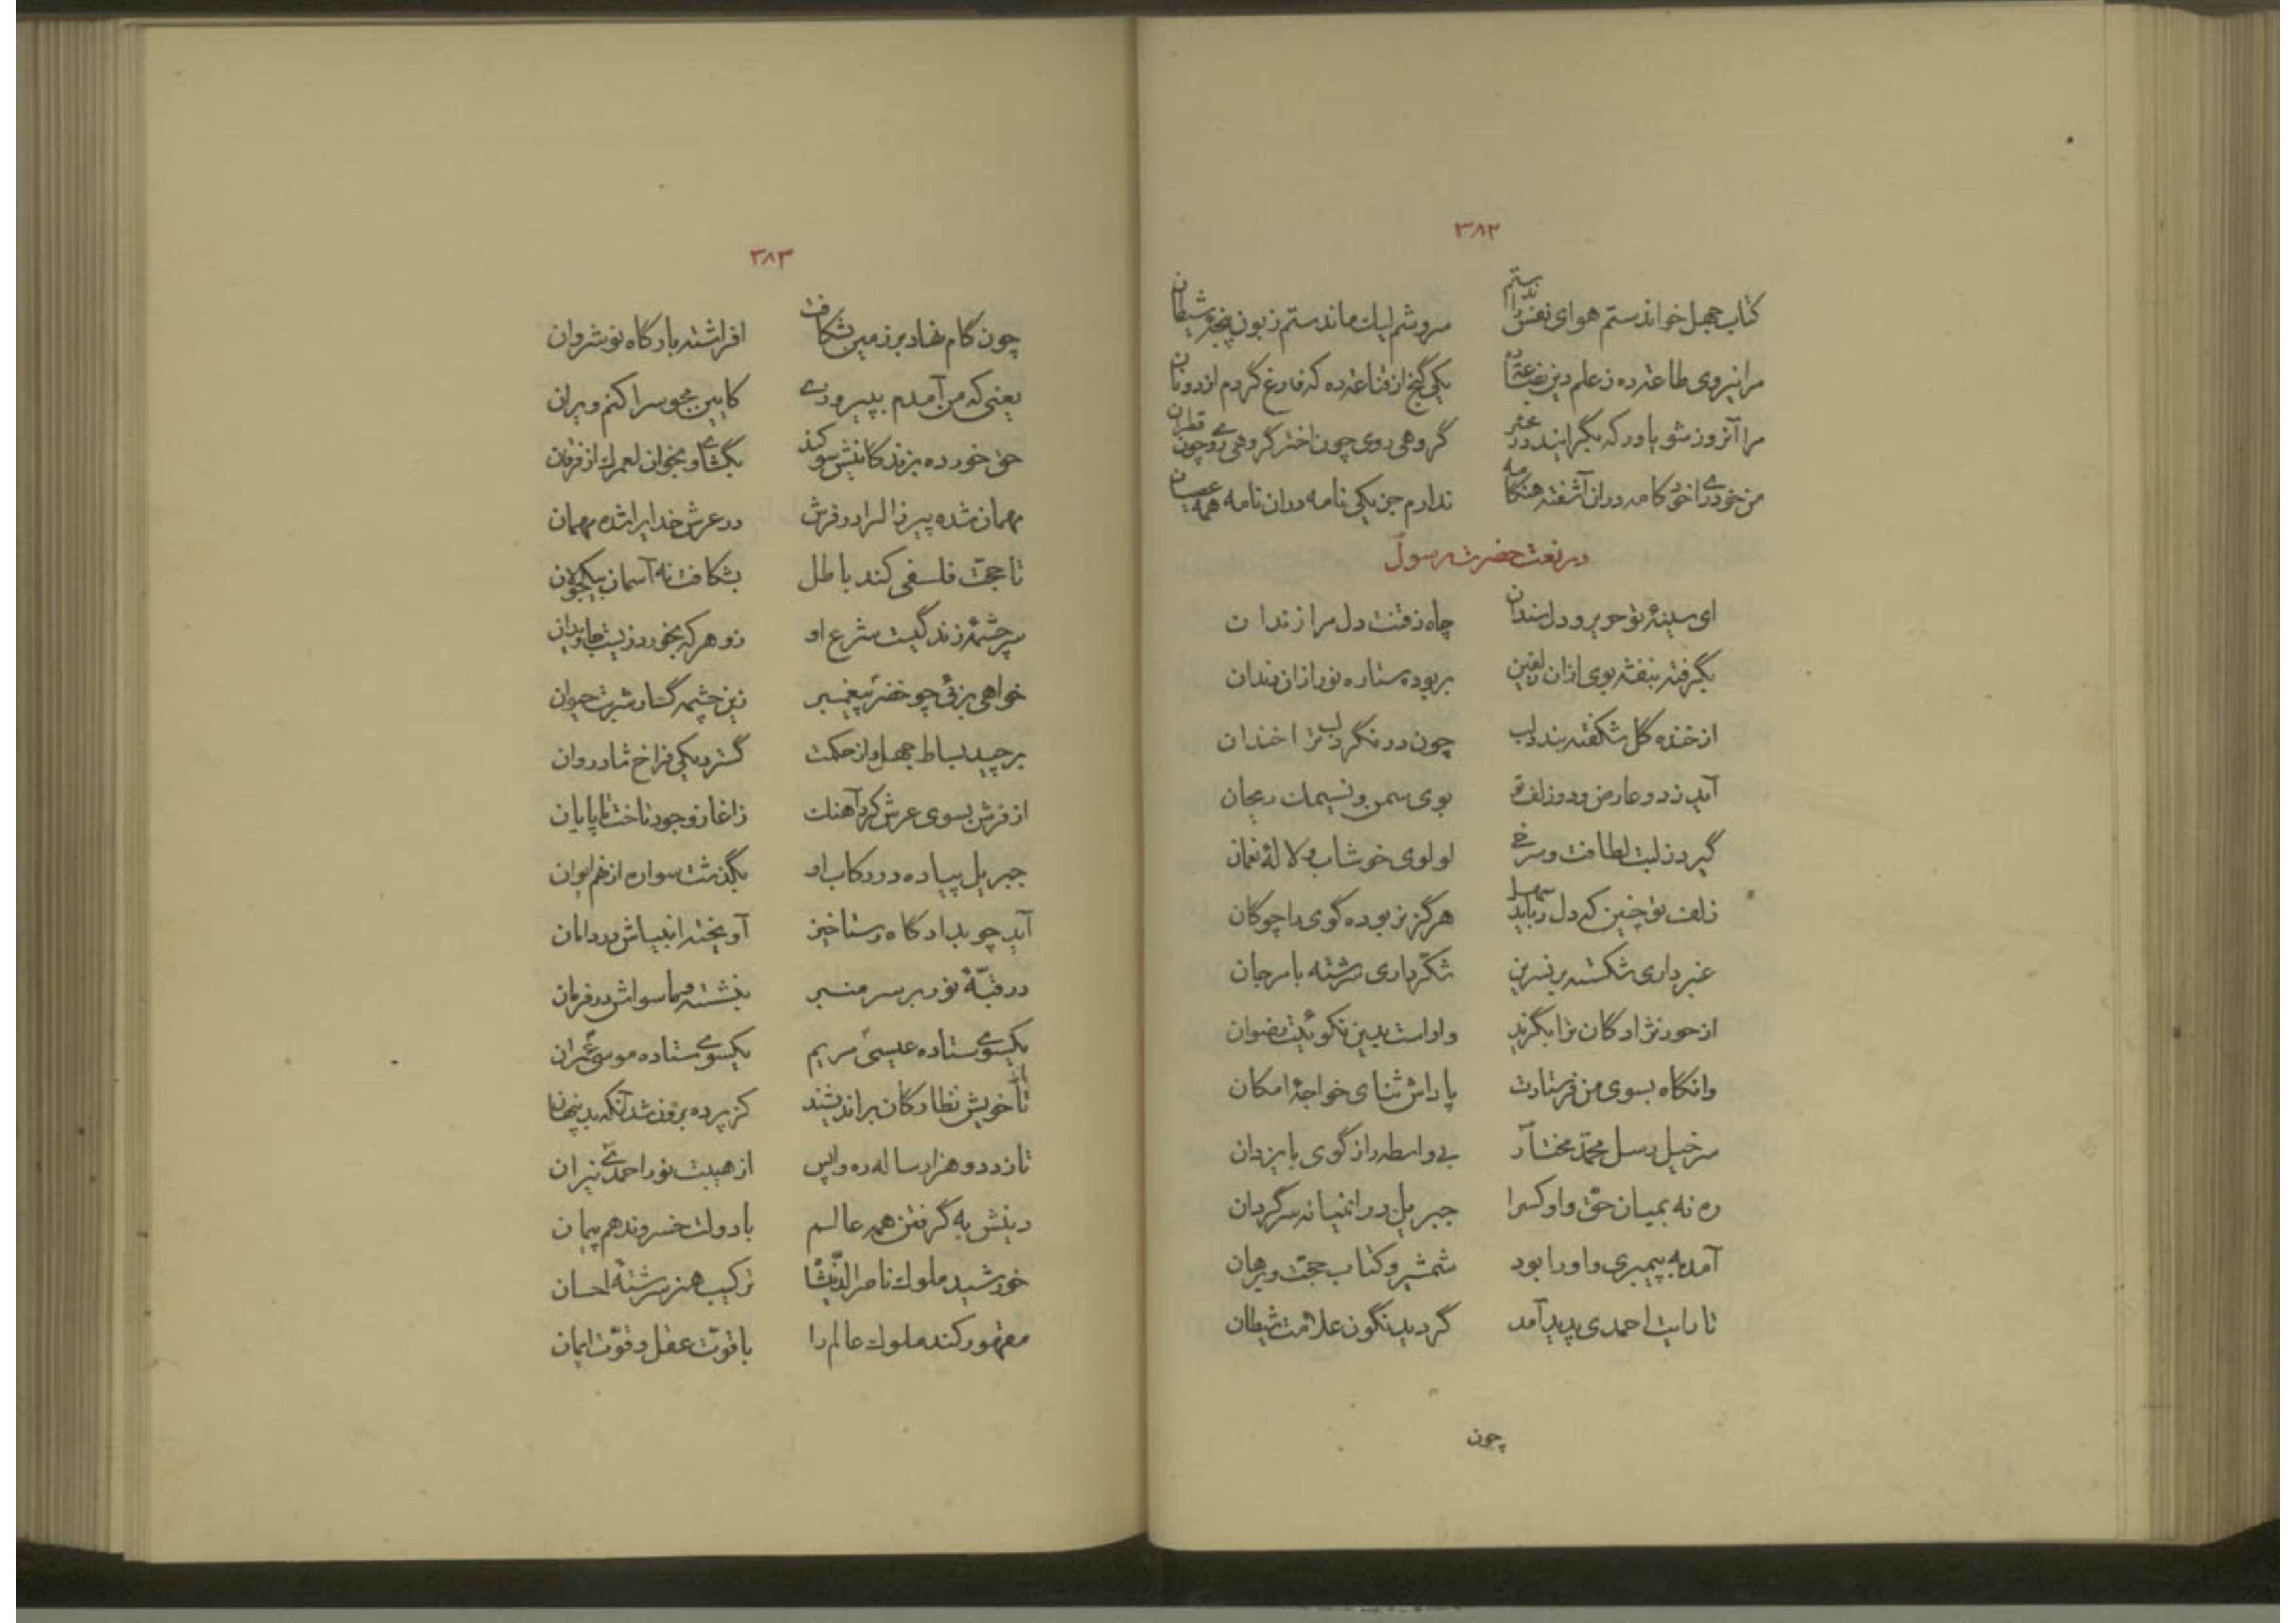 ۳۸۲
کتاب جهل خواندستم هوای نفس را ستم سروشم لیك ماندستم زبون پنجهٔ شیطان
مرا نیروی طاعت ده ز علم دین یکی گنج از قناعت ده که فارغ گردم از دونان
مرا آنروز شو یاور که بگرایند در محشر گروهی روی چون اختر گروهی روی چون قطران
من خودرای خودکامه دران آشفته هنگامه ندارم جز یکی نامه دران نامه همه عصیان
در نعت حضرت رسول
ای سینهٔ تو حریر و دل سندان چاه ذقنت دل مرا زندان
بگرفته بنفشه بوی ازان زلفین بربوده ستاره نور ازان دندان
از خنده گل شکفته بندد لب چون در نگرد لب ترا خندان
آید ز دو عارض و دو زلف تو بوی سمن و نسیمك ریحان
گیرد ز لبت لطافت و سرخی لولوی خوشاب و لالهٔ نعمان
زلف تو چنین که دل رباید سهل هرگز نربوده گوی را چوگان
عنبر داری شکسته بر نسرین شکّر داری سرشته با مرجان
از حور نژادگان ترا بگزید واراست بدین نکوئیت رضوان
وانگاه بسوی من فرستادت پاداش ثنای خواجهٔ امکان
سرخیل رسل محمّد مختار بی واسطه راز گوی با یزدان
ره نه بمیان حقّ و او کس را جبریل در انمیانه سرگردان
آمد به پیمبری و او را بود شمشیر و کتاب حجّت و برهان
تا رایت احمدی پدید آمد گردید نگون علامت شیطان
چون
۳۸۳
چون گام نهاد بر زمین بشکافت افراشته بارگاه نوشروان
یعنی که من آمدم بپیروزی کایین مجوس را کنم ویران
حق خورده بزندگانیش سوگند بگشای و بخوان لعمرك از فرقان
مهمان شده پیر زال را در فرش در عرش خدایرا شده مهمان
تا حجّت فلسفی کند باطل بشکافت نه آسمان بیکجولان
سرچشمهٔ زندگیست شرع او زو هر که بخورد زیست جاویدان
خواهی بزئی چو خضر پیغمبر زین چشمه گسار شربت حیوان
برچید بساط جهل و از حکمت گسترد یکی فراخ شادروان
از فرش بسوی عرش کرد آهنك زاغاز وجود تاخت تا پایان
جبریل پیاده در رکاب او بگذشت سواره از نهم ایوان
آید چو بدادگاه رستاخیز آویخته انبیاش در دامان
در قبّهٔ نور بر سر منبر بنشسته و ماسواش در فرمان
یکسوی ستاده عیسی مریم یکسوی ستاده موسی عمران
تا خویش نظارگان براندیشند کز پرده برون شد آنکه بد پنهان
تازد دو هزار ساله ره واپس از هیبت نور احمدی نیران
دینش به گرفتن همه عالم با دولت خسروند هم پیمان
خورشید ملوك ناصرالدّین شا ترکیب هنر سرشتهٔ احسان
مقهور کند ملوك عالم را با قوّت عقل و قوّت ایمان